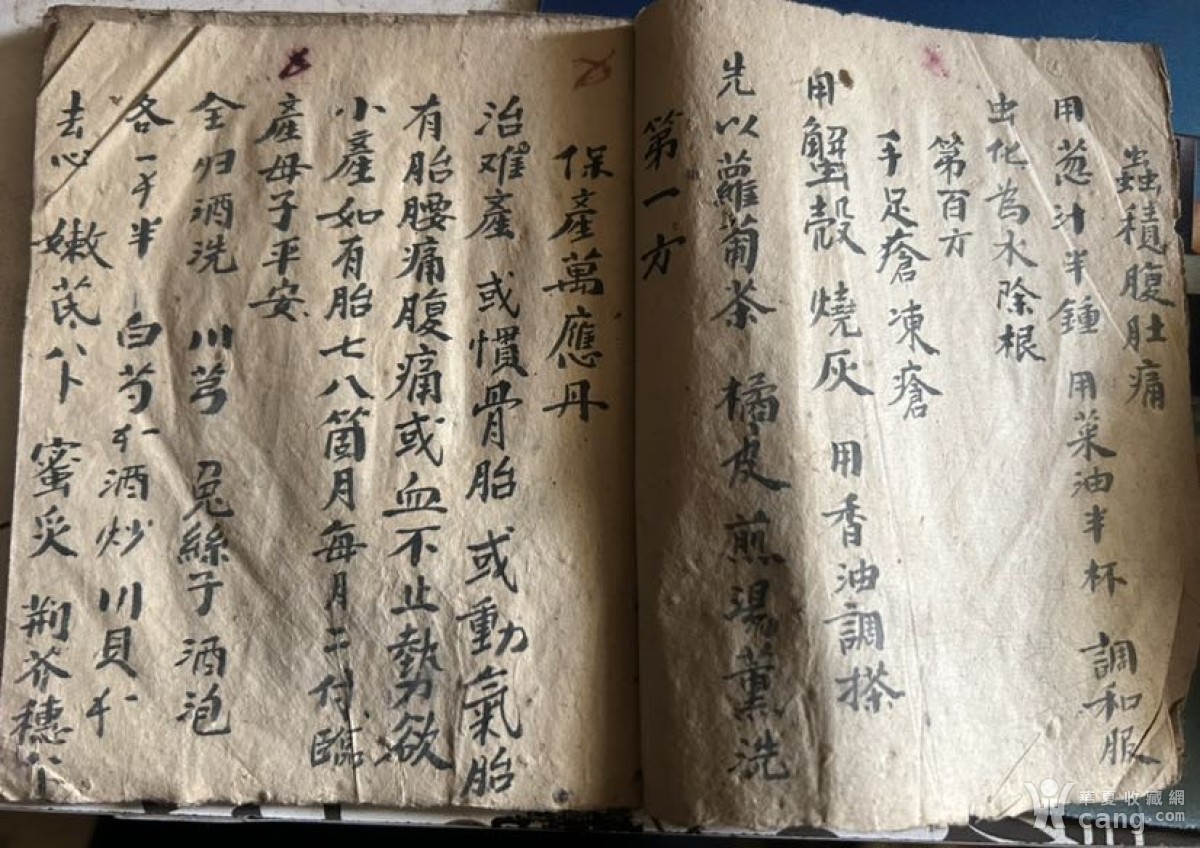 蟲積腹肚痛
用葱汁半鍾 用菜油半杯 調和服
虫化為水除根
第百方
手足瘡凍瘡
用蟹殼 燒灰 用香油調搽
先以蘿蔔茶 橘皮 煎湯薰洗
第一方
保產萬應丹
治难產 或慣骨胎 或動氣胎
有胎腰痛腹痛或血不止勢欲
小產如有胎七八箇月每月二付臨
產母子平安
全归酒洗 川芎 兔絲子酒泡
各一半 白芍 酒炒 川貝
去心 嫩芪 蜜炙 荊芥穗
華夏收藏網
cang.com